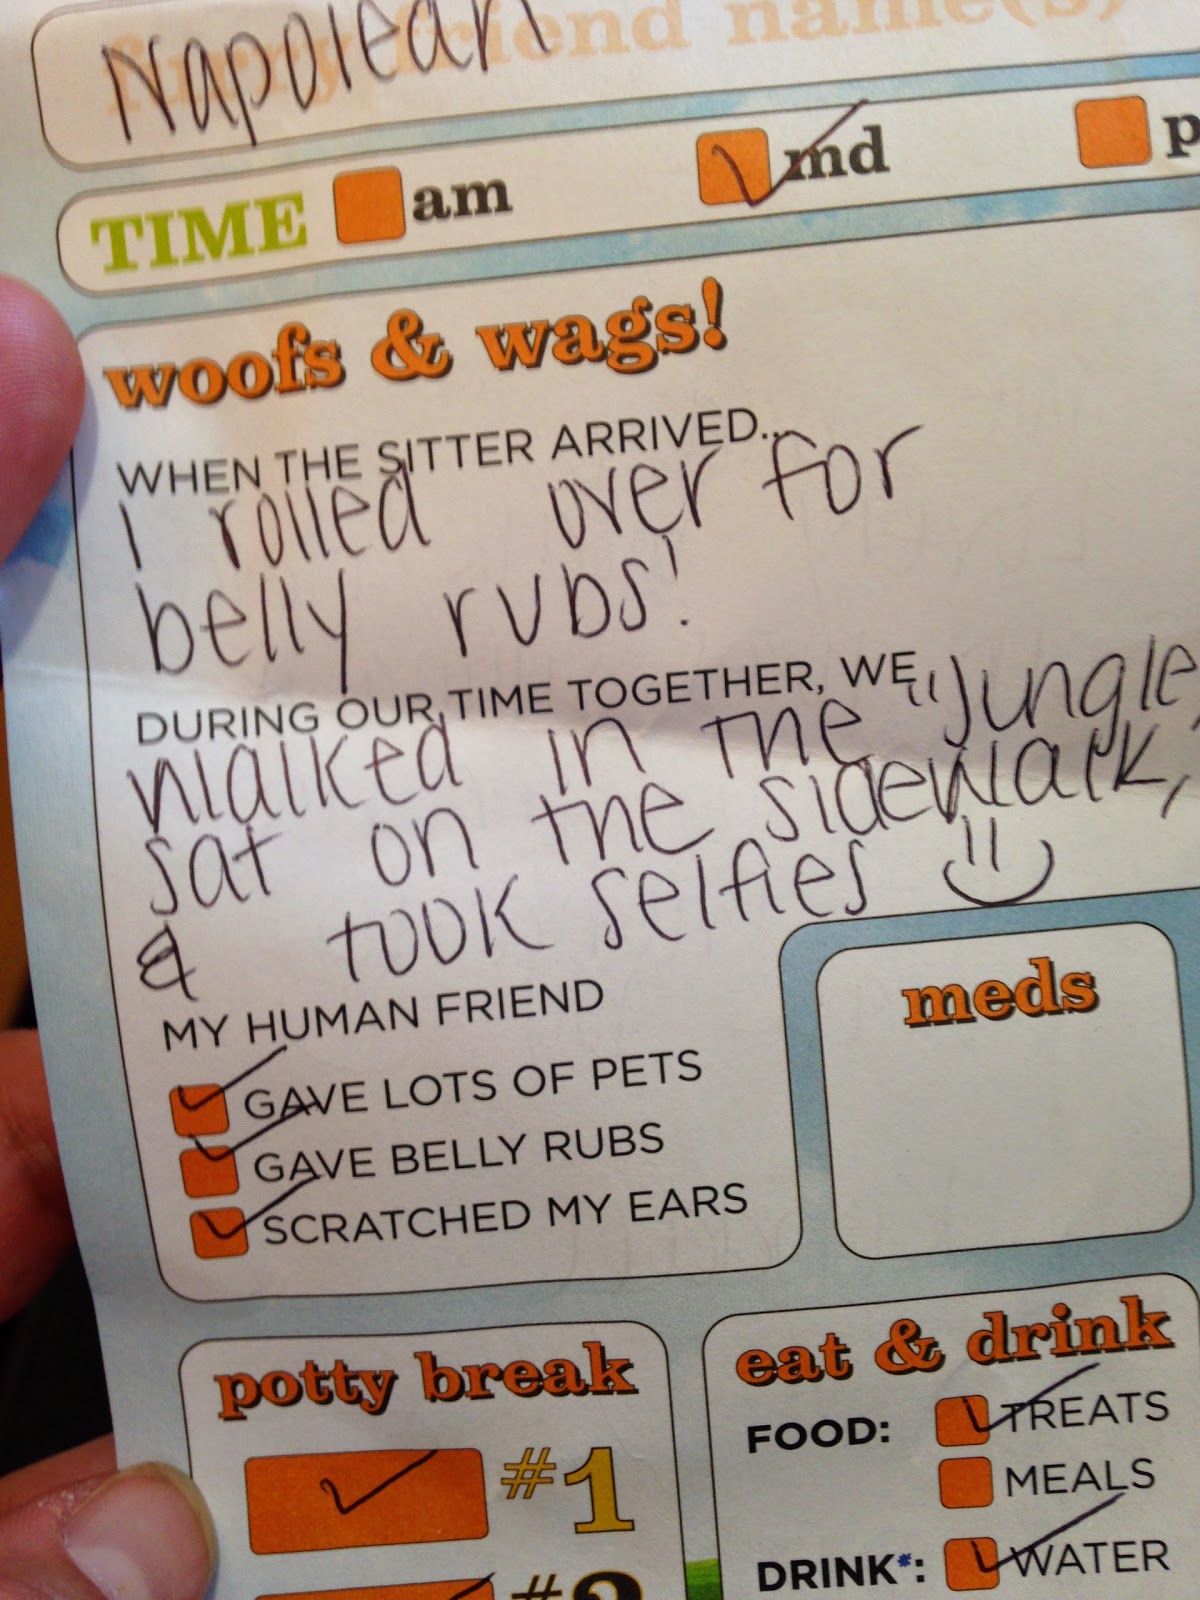 furry friend name(s)
Napolean
TIME am md p
woofs & wags!
WHEN THE SITTER ARRIVED...
I rolled over for
belly rubs!
DURING OUR TIME TOGETHER, WE
walked in the "jungle,
sat on the sidewalk,
& took selfies
MY HUMAN FRIEND
GAVE LOTS OF PETS
GAVE BELLY RUBS
SCRATCHED MY EARS
meds
potty break
#1
#2
eat & drink
FOOD: TREATS
MEALS
DRINK*: WATER